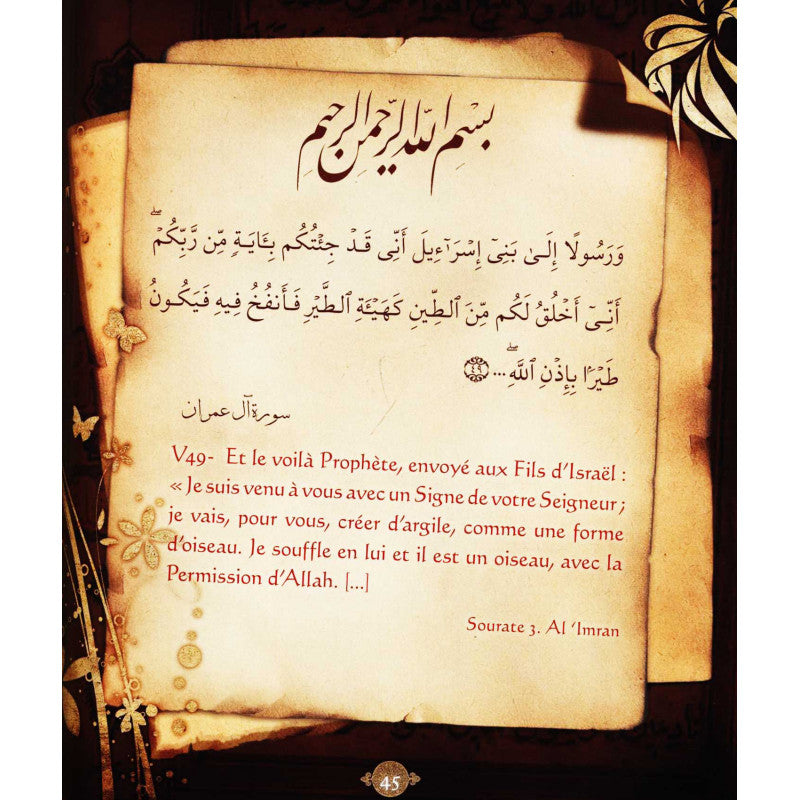 بِسْمِ اللهِ الرَّحْمنِ الرَّحِيمِ
وَرَسُولًا إِلَىٰ بَنِىٓ إِسْرَٰٓءِيلَ أَنِّى قَدْ جِئْتُكُم بِـَٔايَةٍ مِّن رَّبِّكُمْ ۖ
أَنِّىٓ أَخْلُقُ لَكُم مِّنَ ٱلطِّينِ كَهَيْـَٔةِ ٱلطَّيْرِ فَأَنفُخُ فِيهِ فَيَكُونُ
طَيْرًۢا بِإِذْنِ ٱللَّهِ ۖ ... ٤٩
سورة آل عمران
V49- Et le voilà Prophète, envoyé aux Fils d'Israël :
« Je suis venu à vous avec un Signe de votre Seigneur ;
je vais, pour vous, créer d'argile, comme une forme
d'oiseau. Je souffle en lui et il est un oiseau, avec la
Permission d'Allah. [...]
Sourate 3. Al 'Imran
45